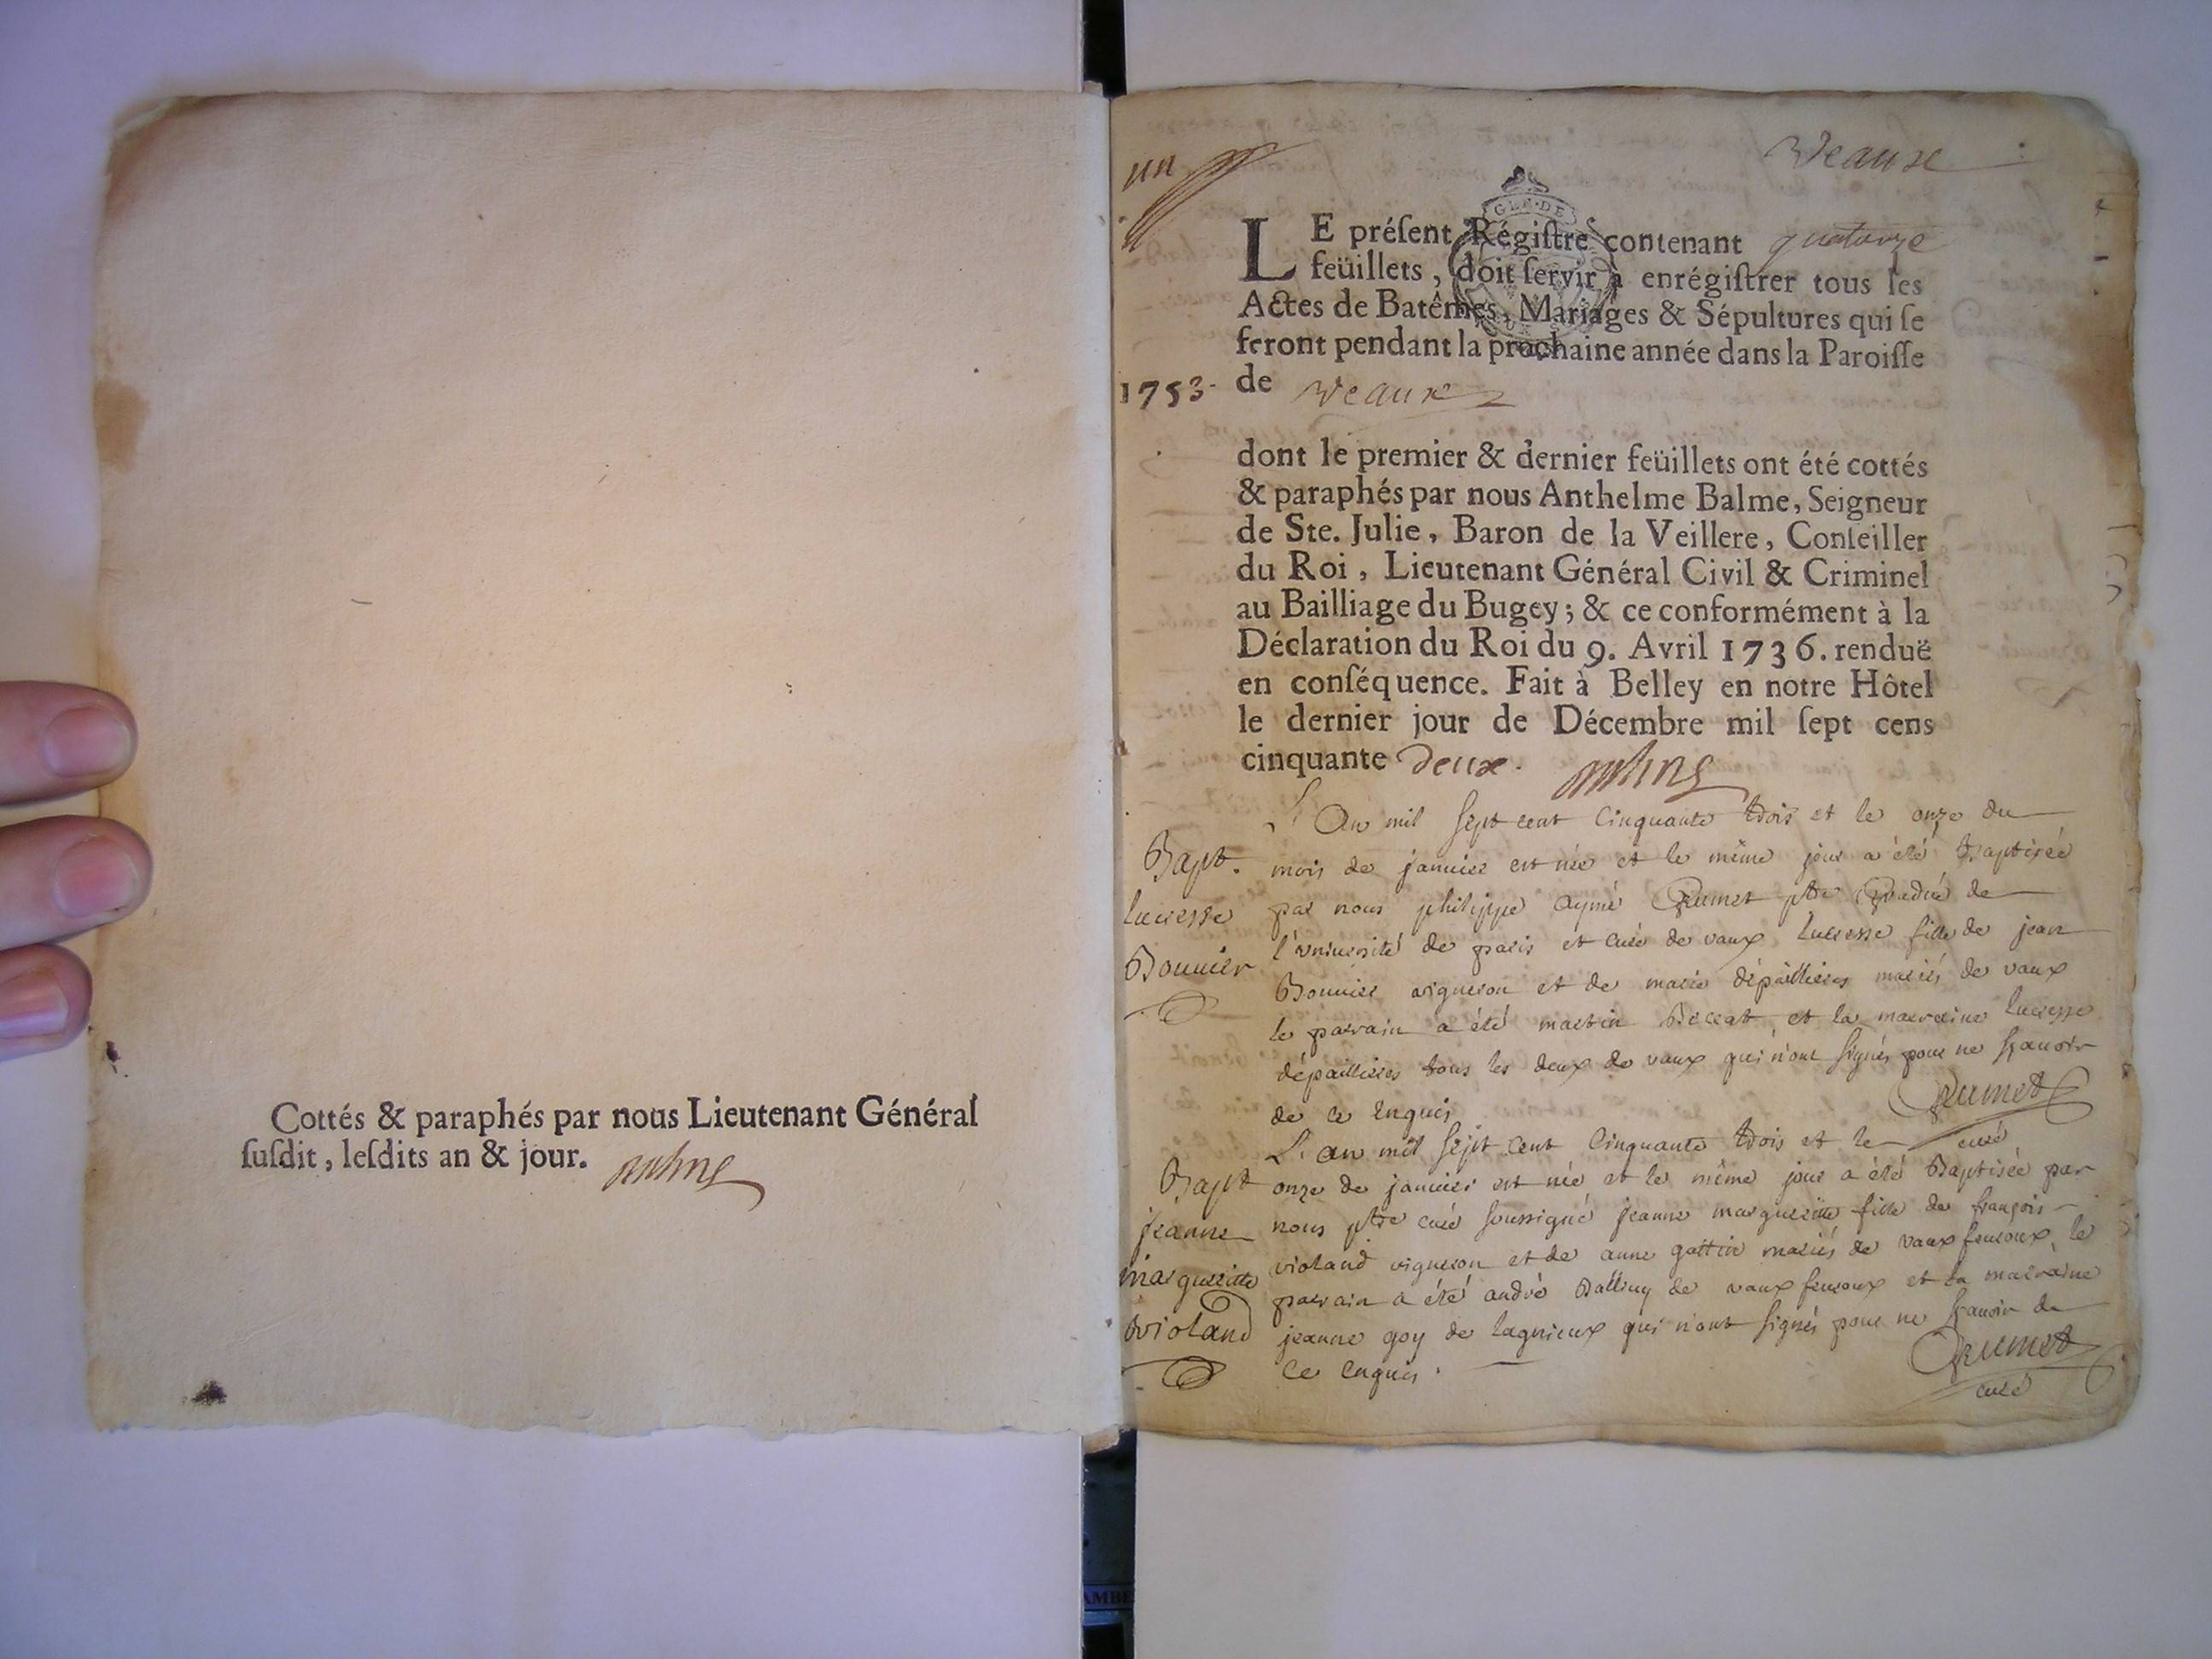 Cottés & paraphés par nous Lieutenant Général
ſuſdit, leſdits an & jour.
un
Veaux
LE préſent Régiſtre contenant quatorze
feüillets, doit ſervir à enrégiſtrer tous les
Actes de Batêmes, Mariages & Sépultures qui ſe
feront pendant la prochaine année dans la Paroiſſe
1753. de Veaux
dont le premier & dernier feüillets ont été cottés
& paraphés par nous Anthelme Balme, Seigneur
de Ste. Julie, Baron de la Veillere, Conſeiller
du Roi, Lieutenant Général Civil & Criminel
au Bailliage du Bugey; & ce conformément à la
Déclaration du Roi du 9. Avril 1736. renduë
en conſéquence. Fait à Belley en notre Hôtel
le dernier jour de Décembre mil ſept cens
cinquante deux.
L'An mil sept cent cinquante trois et le onze du
Bapt.
lucresse
Bonnier
mois de janvier est née et le même jour a été Baptisée
par nous philippe aymé Grumet ptre Gradué de
l'université de paris et curé de vaux, lucresse fille de jean
Bonnier vigneron et de marie dépaillieres mariés de vaux
le parrain a été martin et la marraine lucresse
dépaillieres tous les deux de vaux qui n'ont signés pour ne sçavoir
de ce enquis
Grumet
curé
L'an mil sept cent cinquante trois et le
Bapt
jeanne
margueritte
violand
onze de janvier est née et le même jour a été Baptisée par
nous ptre curé soussigné jeanne margueritte fille de françois
violand vigneron et de anne mariés de vaux fevroux, le
parrain a été andré de vaux fevroux et la marraine
jeanne goy de lagnieux qui n'ont signés pour ne sçavoir de
ce enquis.
Grumet
curé